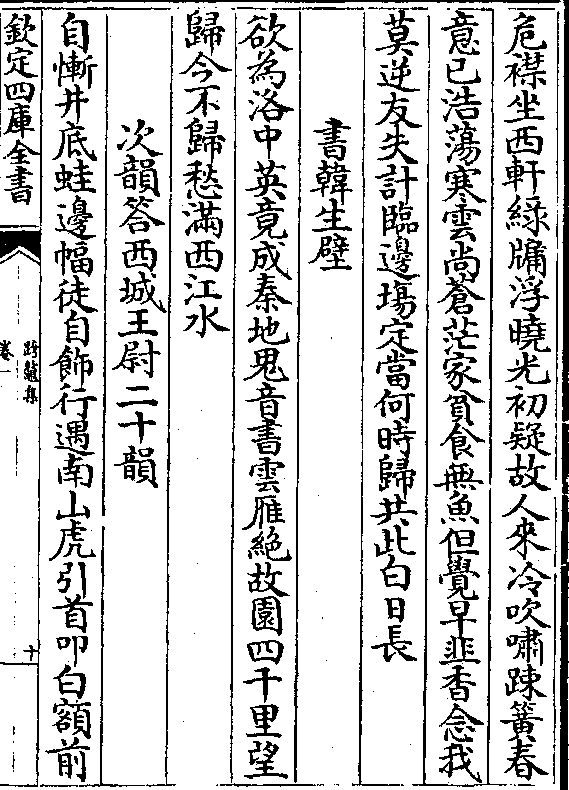 危襟坐西軒綠牖浮曉光初疑故人來冷吹嘯踈篁春
意已浩蕩寒雲尚蒼茫家貧食無魚但覺早韭香念我
莫逆友失計臨邊塲定當何時歸共此白日長
書韓生壁
欲為洛中英竟成秦地鬼音書雲雁絶故園四千里望
歸今不歸愁滿西江水
次韻答西城王尉二十韻
自慚井底蛙邊幅徒自飾行遇南山虎引首叩白額前
欽定四庫全書
跨鼇集
卷一
十